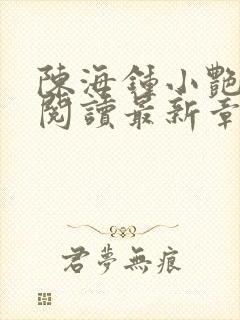 陳海鍾小艷
閱讀最新章
君夢無痕